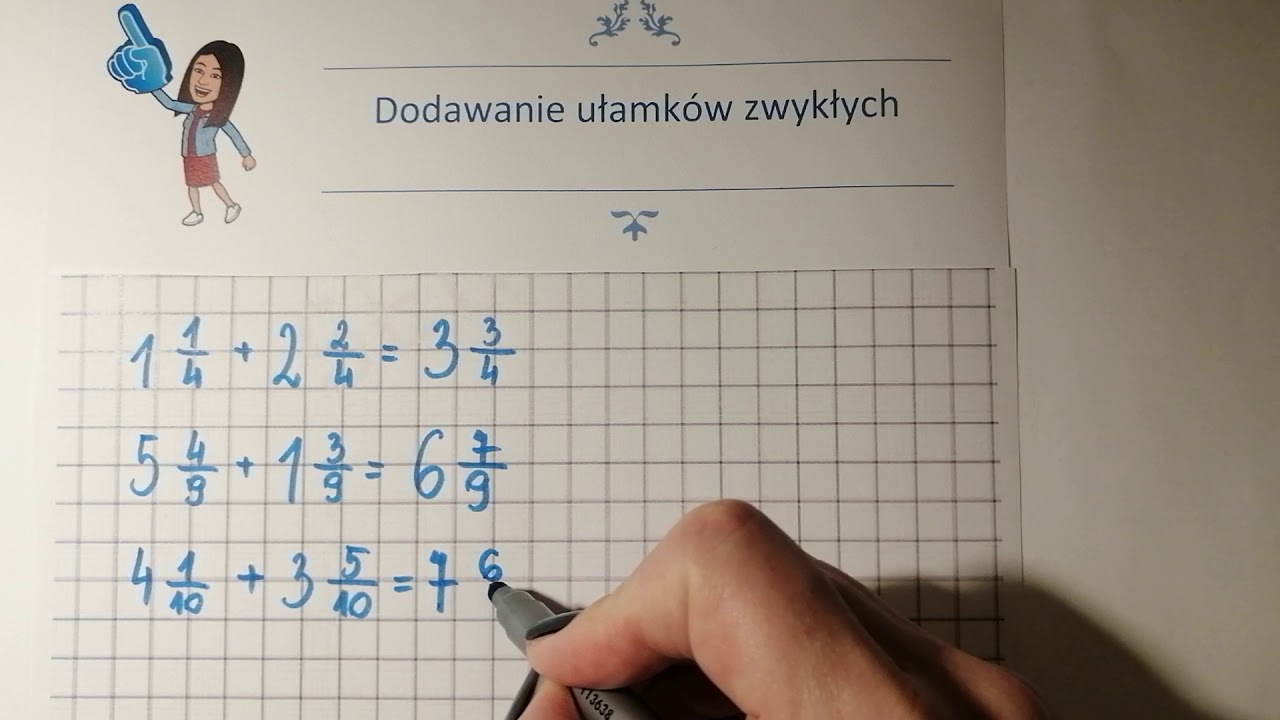 Dodawanie ułamków zwykłych
1 1/4 + 2 2/4 = 3 3/4
5 4/9 + 1 3/9 = 6 7/9
4 1/10 + 3 5/10 = 7 6
113638